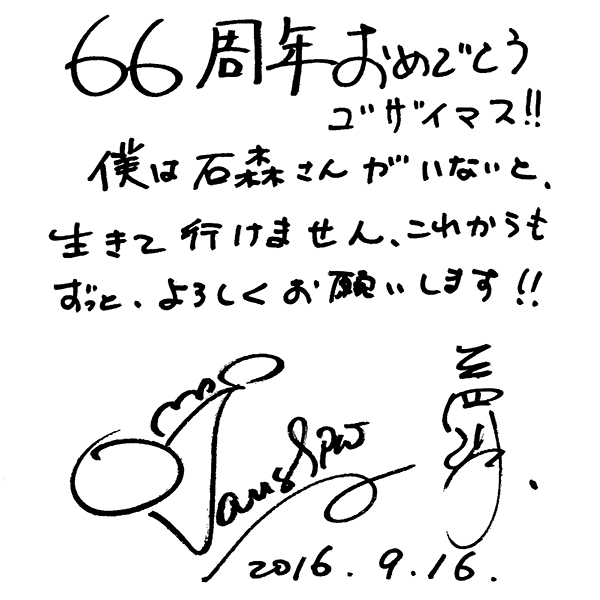 66周年おめでとう
ゴザイマス!!
僕は石森さんがいないと、
生きて行けません、これからも
ずっと、よろしくお願いします!!
夢
2016.9.16.